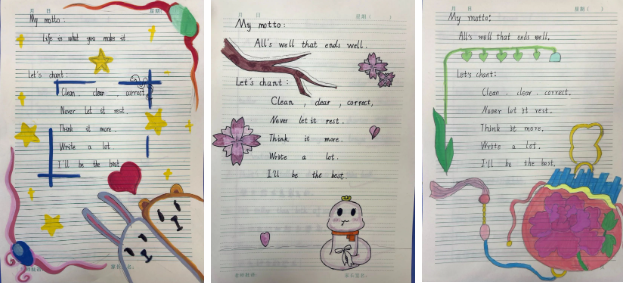 My motto:
Life is what you make it
Let's chant:
Clean, clear, correct,
Never let it rest.
Think it more.
Write a lot.
I'll be the best.
My motto:
All's well that ends well.
Let's chant:
Clean, clear, correct,
Never let it rest.
Think it more.
Write a lot.
I'll be the best.
My motto:
All's well that ends well.
Let's chant:
Clean, clear, correct,
Never let it rest.
Think it more.
Write a lot.
I'll be the best.